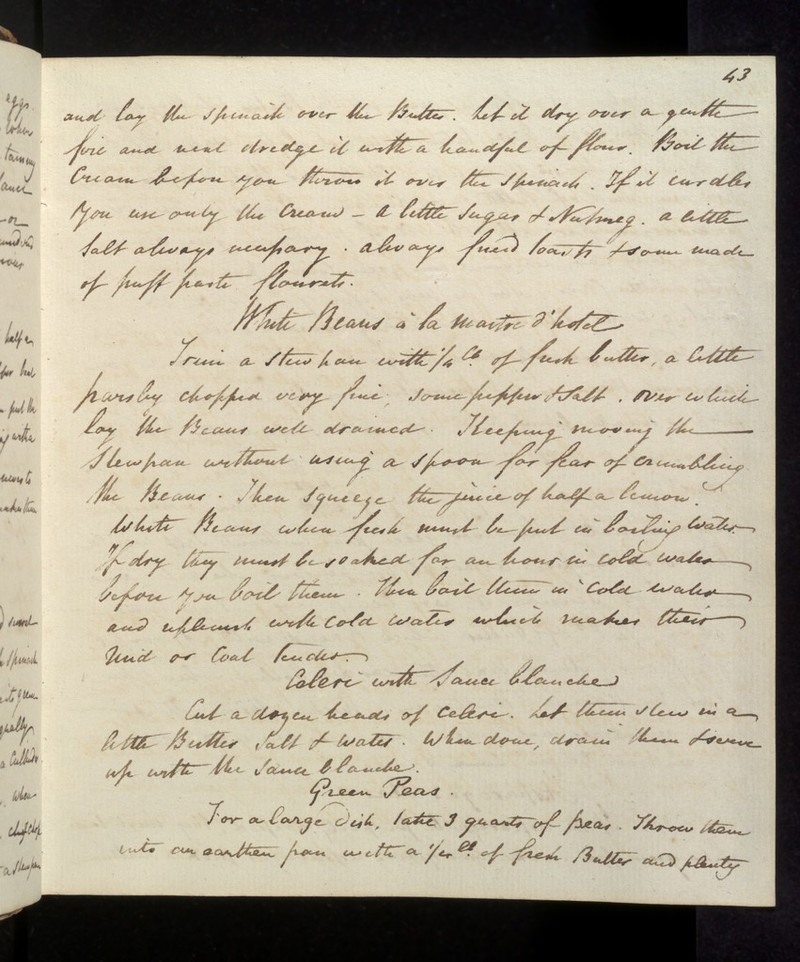 43
and lay the spinach over the Butter. Let it dry over a gentle
fire and next dredge it with a handful of flour. Boil the
Cream before you throw it over the Spinach. If it curdles
you use only the Cream - a little Sugar & Nutmeg. a little
Salt always necessary. always fried toasts & some made
of puff paste flourets.
White Beans à la maitre d'hotel
Trim a stew pan with 1/4 lb. of fresh butter, a little
parsley chopped very fine, some pepper & Salt. over which
lay the Beans well drained. Keeping moving the
Stewpan without using a spoon for fear of crumbling
the Beans. Then squeeze the juice of half a lemon.
White Beans when fresh must be put in boiling water
If dry they must be soaked for an hour in cold water
before you boil them. Then boil them in cold water
and replenish with Cold water which makes their
or Coat tender.
Celeri with Sauce blanche
Cut a dozen heads of Celeri. Let them stew in a
little Butter Salt & water. When done, drain them & serve
up with the Sauce blanche.
Green Peas.
For a large dish, take 3 quarts of peas. Throw them
into an earthen pan with a lb. of fresh Butter and plenty
eggs.
when
or
half an
put the
with a
Spinach
when